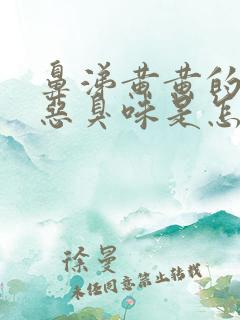 鼻涕黄黄的
恶臭味是怎
徐曼
未经同意禁止转载